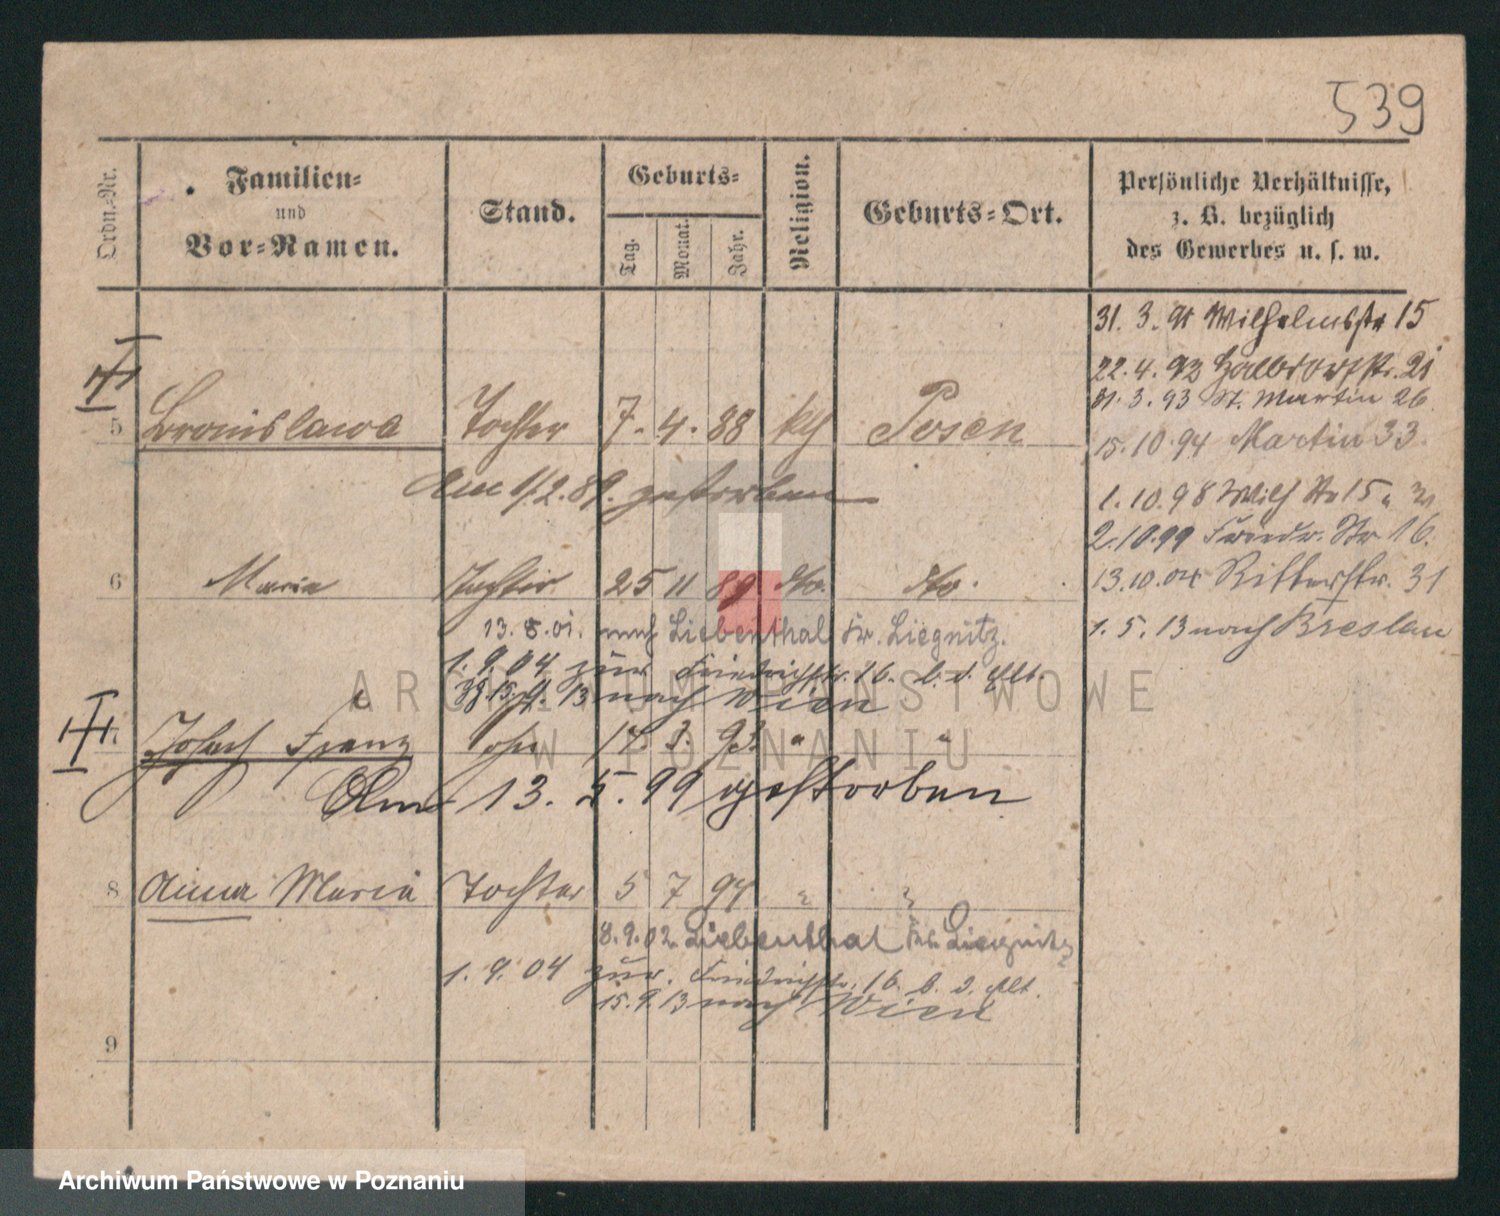 539
Ordn.-Nr.
Familien-
und
Vor-Namen.
Stand.
Geburts-
Tag.
Monat.
Jahr.
Religion.
Geburts-Ort.
Persönliche Verhältnisse,
z. B. bezüglich
des Gewerbes u. s. w.
31. 3. 91 Wilhelmstr 15
22. 4. 93 Halbdorfstr. 21
31. 3. 93 St. Martin 26
15. 10. 94 Martin 33.
1. 10. 98 Wilh Str 15
2. 10. 99 Friedr. Str 16.
13. 10. 04 Ritterstr. 31
1. 5. 13 nach Breslau
5 Bronislawa Tochter 7. 4. 88 kth Posen
Am 1/2. 89. gestorben
6 Maria Tochter 25 11 89 dto. dto.
13. 8. 01. nach Liebenthal Kr. Liegnitz.
1. 9. 04 zur. Friedrichstr. 16. b. d. Elt.
15. 9. 13 nach Wien
7 Joseph Franz Sohn 17. 3. 93. " "
Am 13. 5. 99 gestorben
8 Anna Maria Tochter 5 7 94 " "
8. 9. 02. Liebenthal Kr. Liegnitz
1. 9. 04 zur. Friedrichstr. 16. b. d. Elt.
15. 9. 13 nach Wien
9
ARCHIWUM PAŃSTWOWE
W POZNANIU
Archiwum Państwowe w Poznaniu